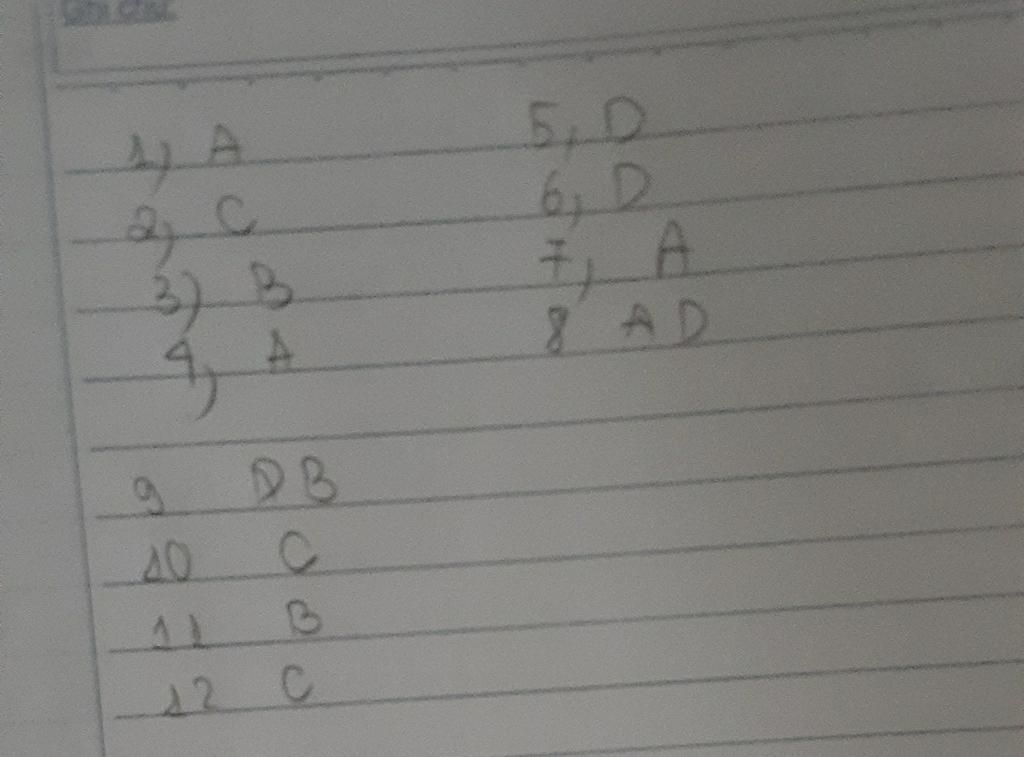 1, A
2, C
3) B
4, A
5, D
6, D
7, A
8 AD
9 DB
10 C
11 B
12 C